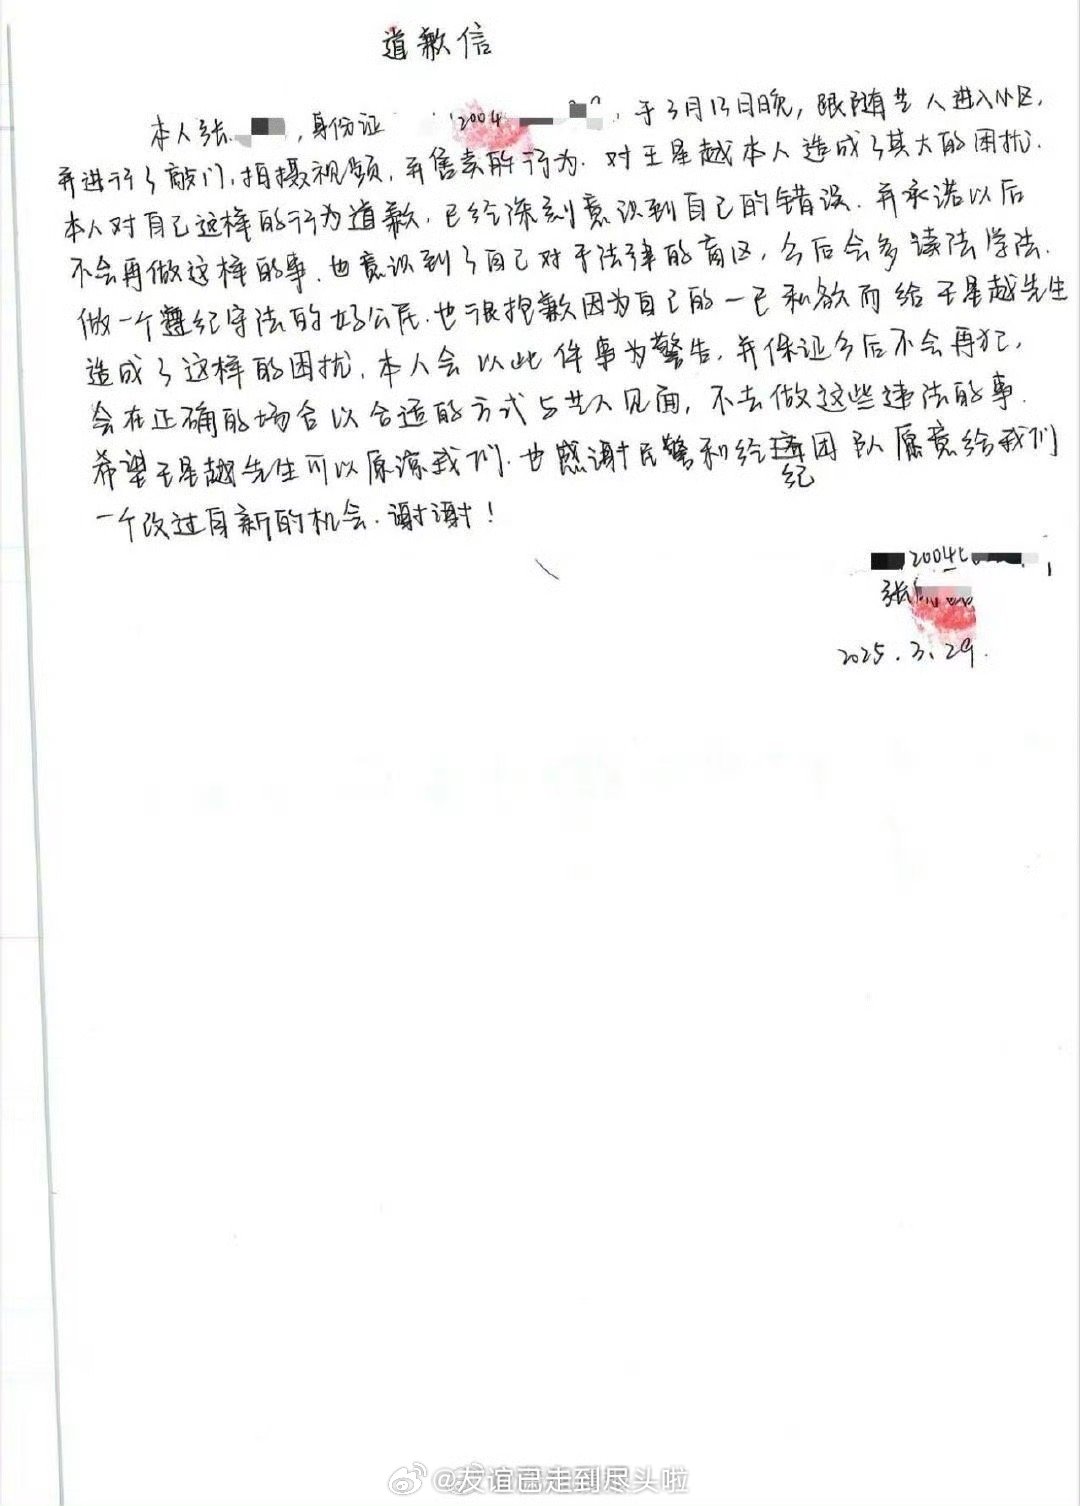 道歉信
本人张 ，身份证 2004 ，于3月13日晚，跟随艺人进入小区，
并进行了敲门，拍摄视频，并售卖的行为．对王星越本人造成了其大的困扰．
本人对自己这样的行为道歉，已经深刻意识到自己的错误．并承诺以后
不会再做这样的事．也意识到了自己对于法律的盲区，今后会多读法学法．
做一个遵纪守法的好公民．也很抱歉因为自己的一己私欲而给王星越先生
造成了这样的困扰．本人会以此件事为警告，并保证今后不会再犯，
会在正确的场合以合适的方式与艺人见面，不去做这些违法的事．
希望王星越先生可以原谅我们．也感谢民警和经纪团队愿意给我们
一个改过自新的机会．谢谢！
2004
张
2025.3.29.
@友谊已走到尽头啦